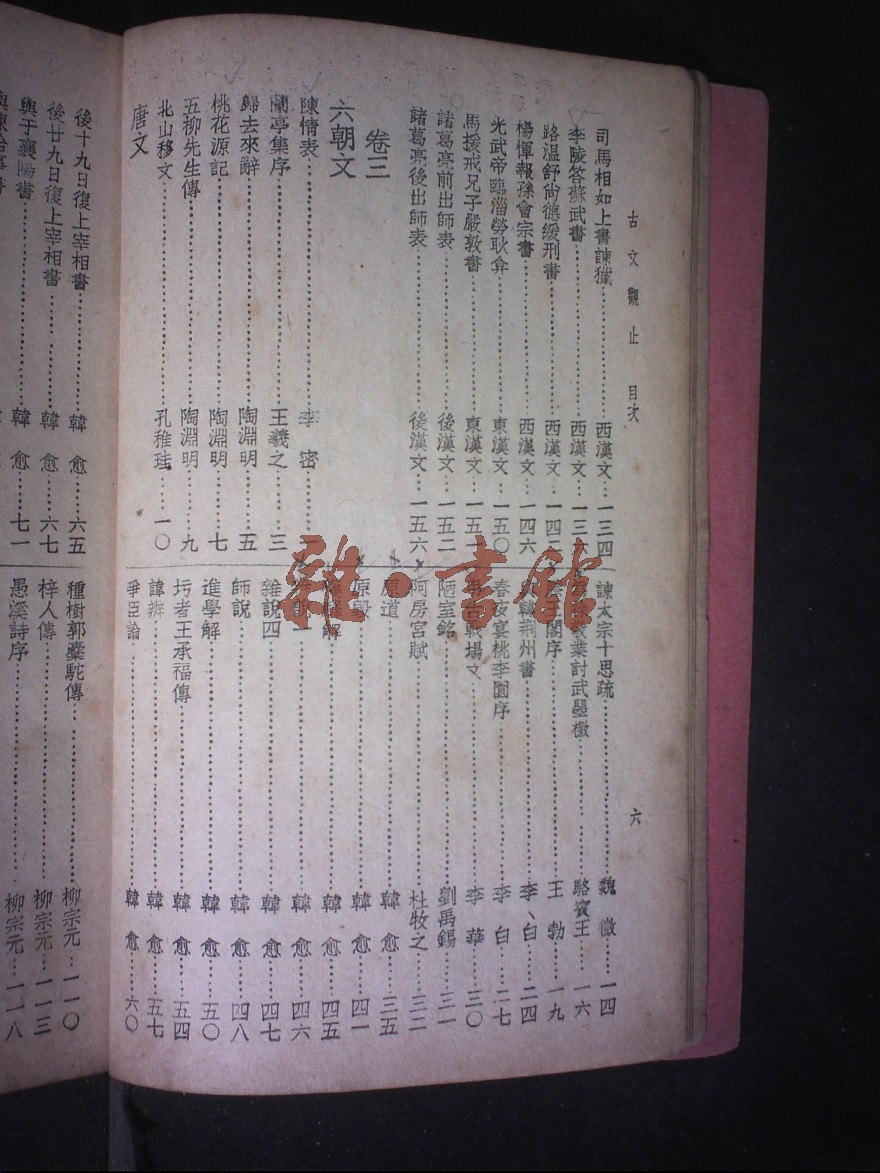 古文觀止 目次 六
司馬相如上書諫獵 西漢文 一三四
李陵答蘇武書 西漢文 一三
路溫舒尚德緩刑書 西漢文 一四
楊惲報孫會宗書 西漢文 一四六
光武帝臨淄勞耿弇 東漢文 一五〇
馬援戒兄子嚴敦書 東漢文 一五
諸葛亮前出師表 後漢文 一五二
諸葛亮後出師表 後漢文 一五六
卷三
六朝文
陳情表 李密 一
蘭亭集序 王羲之 三
歸去來辭 陶淵明 五
桃花源記 陶淵明 七
五柳先生傳 陶淵明 九
北山移文 孔稚珪 一〇
唐文
諫太宗十思疏 魏徵 一四
敬業討武曌檄 駱賓王 一六
王閣序 王勃 一九
韓荆州書 李白 二四
春夜宴桃李園序 李白 二七
古戰場文 李華 三〇
陋室銘 劉禹錫 三一
阿房宮賦 杜牧之 三二
原道 韓愈 三五
原毀 韓愈 四一
解 韓愈 四五
韓愈 四六
雜說四 韓愈 四七
師說 韓愈 四八
進學解 韓愈 五〇
圬者王承福傳 韓愈 五四
諱辨 韓愈 五七
爭臣論 韓愈 六〇
後十九日復上宰相書 韓愈 六五
後廿九日復上宰相書 韓愈 六七
與于襄陽書 韓愈 七一
種樹郭橐駝傳 柳宗元 一一〇
梓人傳 柳宗元 一一三
愚溪詩序 柳宗元 一一八
雜·書館